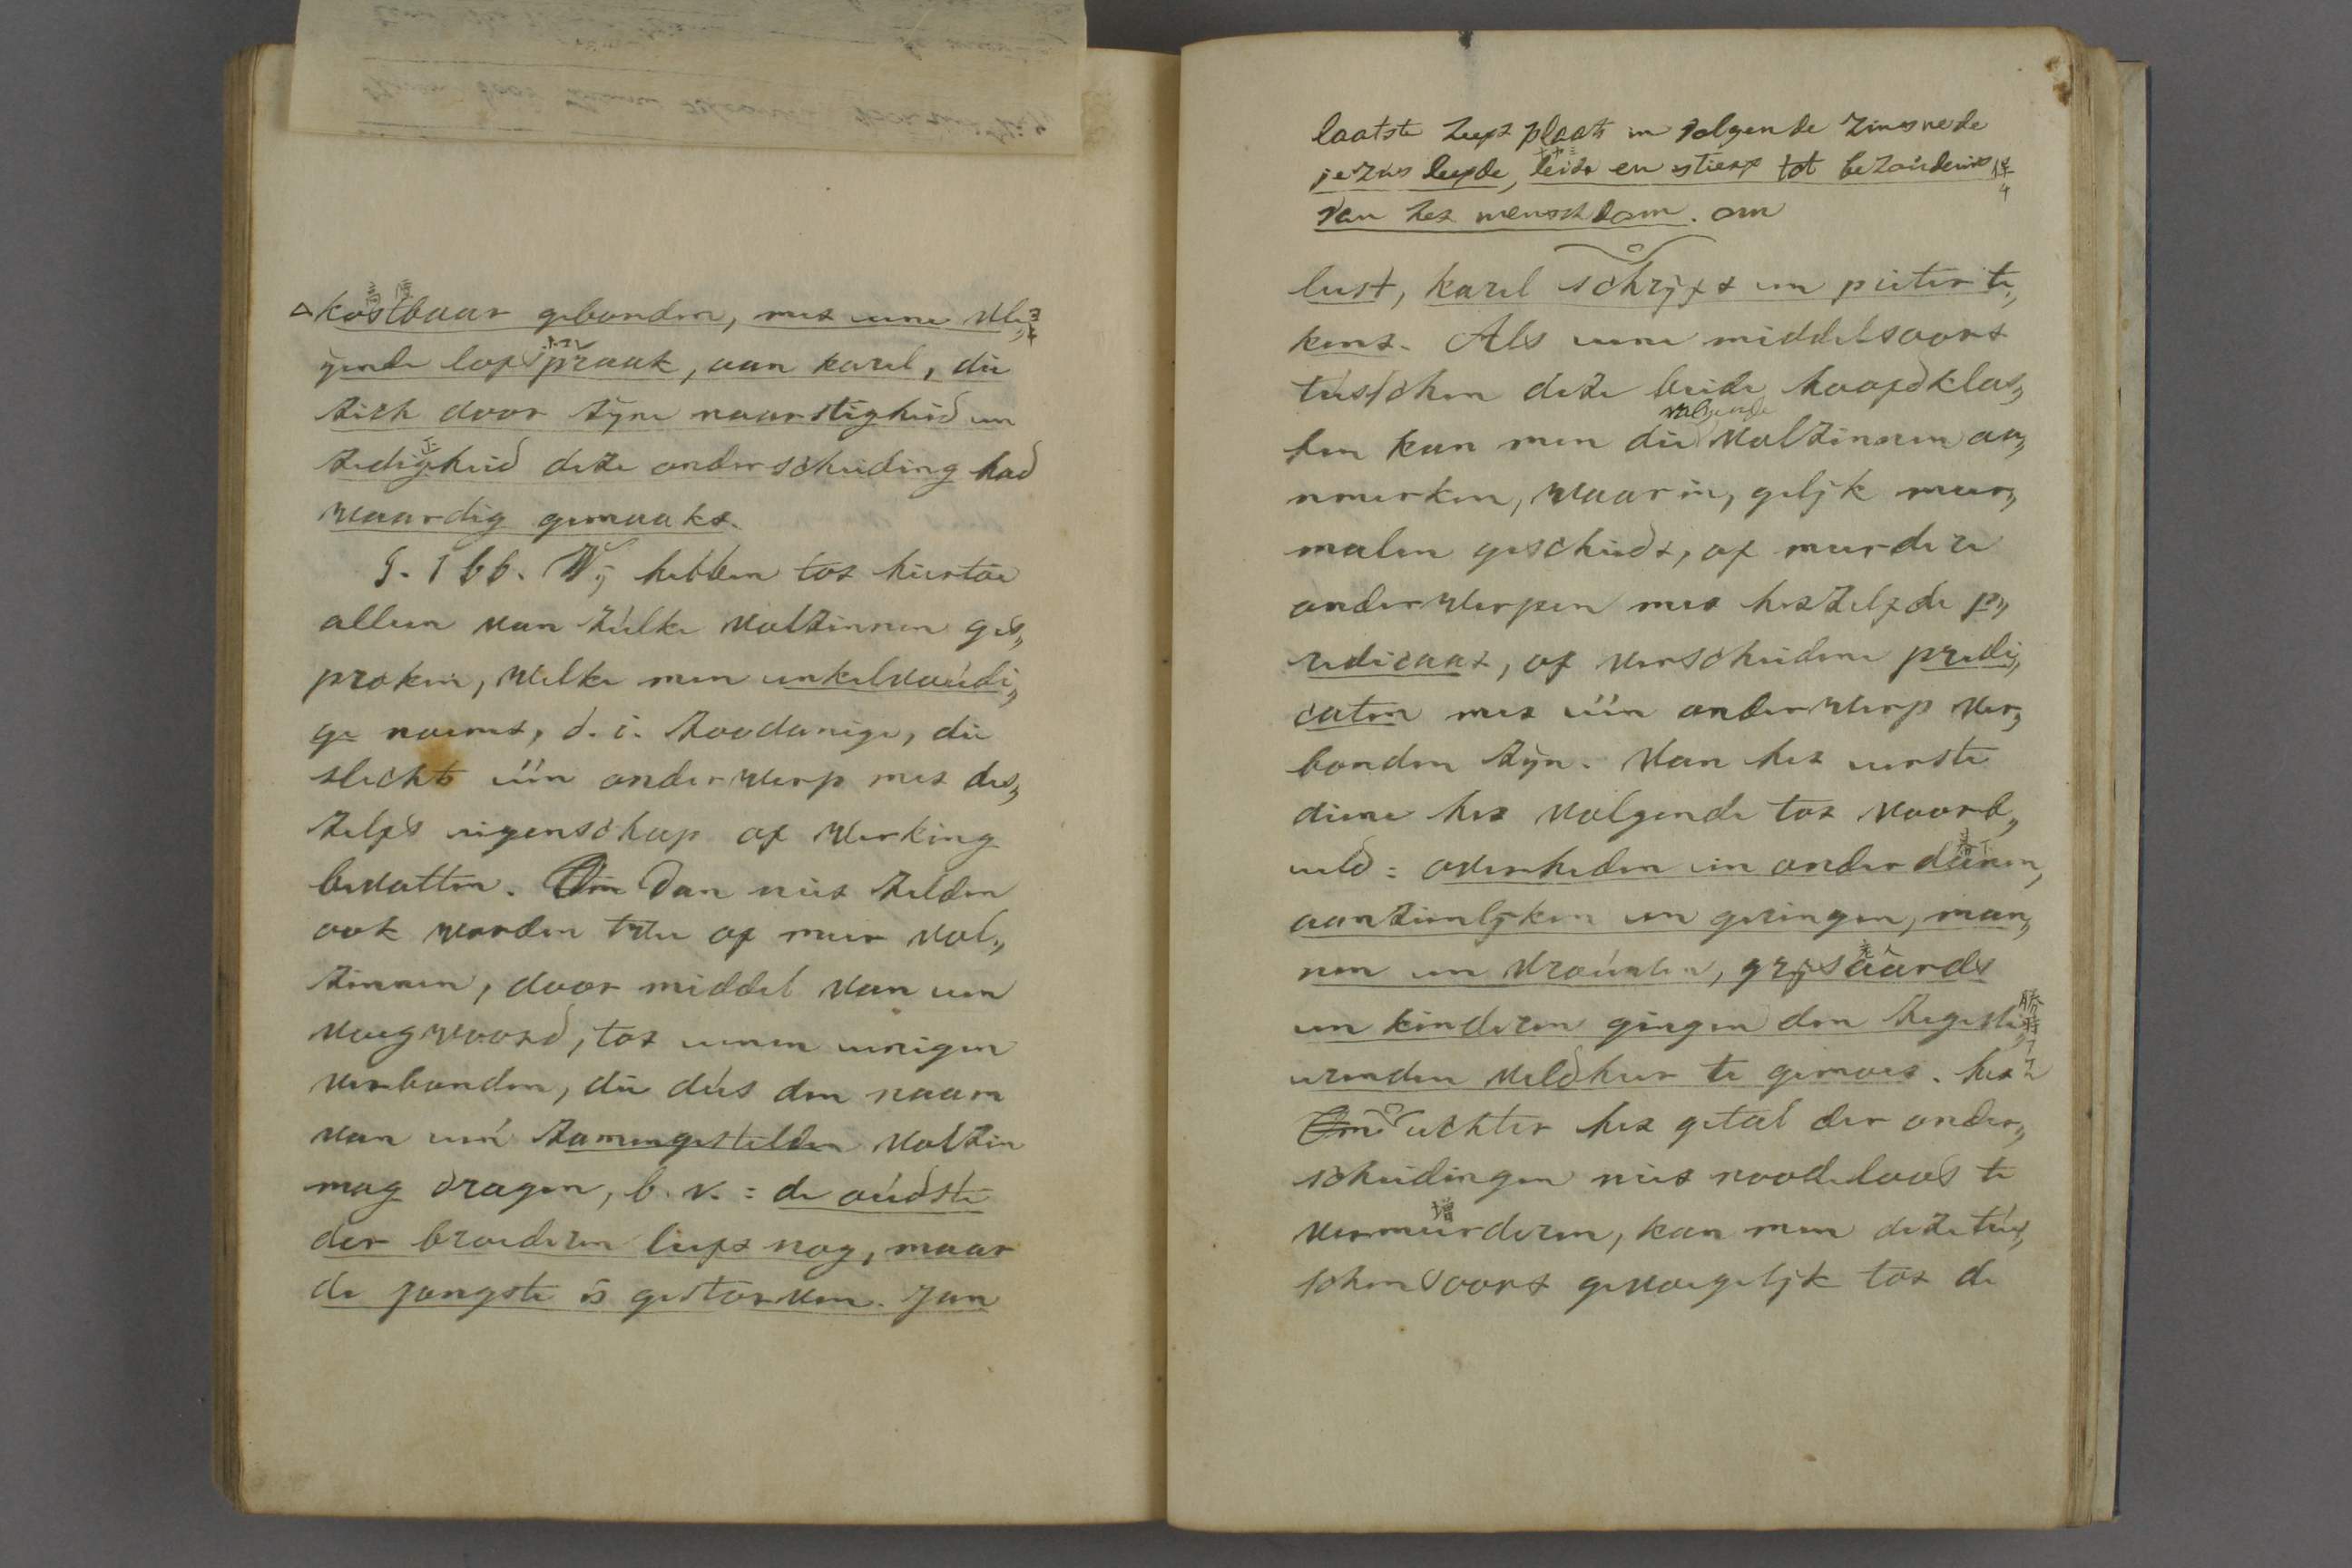 kostbaar gebonden, met eene vle„
ijende lofspraak, aan karel, die
zich door zijne naarstigheid en
zedigheid deze onderscheiding had
waardig gemaakt.
§. 166. Wij hebben tot hiertoe
alleen van zulke volzinnen ges„
proken, welke men enkelvoudi„
ge noemt, d. i. zoodanige, die
slechts één onderwerp met des„
zelfs eigenschap of werking
bevatten. Dan niet zelden
ook worden twee of meer vol„
zinnen, door middel van een
voegwoord, tot eenen eenigen
verbonden, die dus den naam
van een' zamengestelden volzin
mag dragen, b. v. = de oudste
der broederen leeft nog, maar
de jongste is gestorven. Jan
laatste heeft plaats in volgende zinsnede
jezus leefde, leide en stierf tot behoudenis
van het menschdom. om
leest, karel schrijft en pieter te„
kent. Als eene middelsoort
tusschen deze beide hoofdklas„
sen kan men die volgende volzinnen aa„
nmerken, waarin, gelijk meer„
malen geschiedt, of meerdere
onderwerpen met hetzelfde p„
redicaat, of verscheidene predi„
caten met één onderwerp ver„
bonden zijn. Van het eerste
diene het volgende tot voorb„
eeld = overheden en onderdanen,
aanzienlijken en geringen, man„
nen en vrouwen, grijsaards
en kinderen gingen den zegevi„
erenden veldheer te gemoet. het
echter het getal der onder„
scheidingen niet noodeloos te
vermeerderen, kan men deze tus„
schensoort gevoegelijk tot de